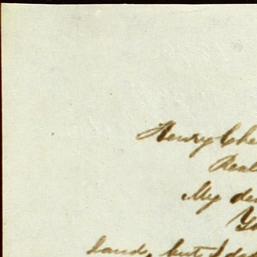 Henry Che
Real
My de
Yo
land, but I do